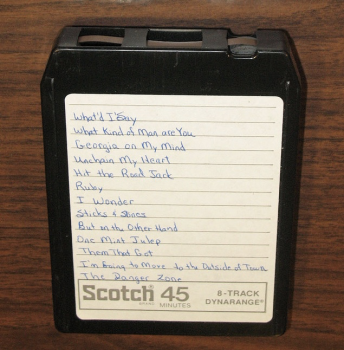 What'd I Say
What Kind of Man are You
Georgia on My Mind
Unchain My Heart
Hit the Road Jack
Ruby
I Wonder
Sticks & Stones
But on the Other Hand
One Mint Julep
Them That Got
I'm Going to Move to the Outside of Town
The Danger Zone
Scotch 45
BRAND MINUTES
8-TRACK
DYNARANGE